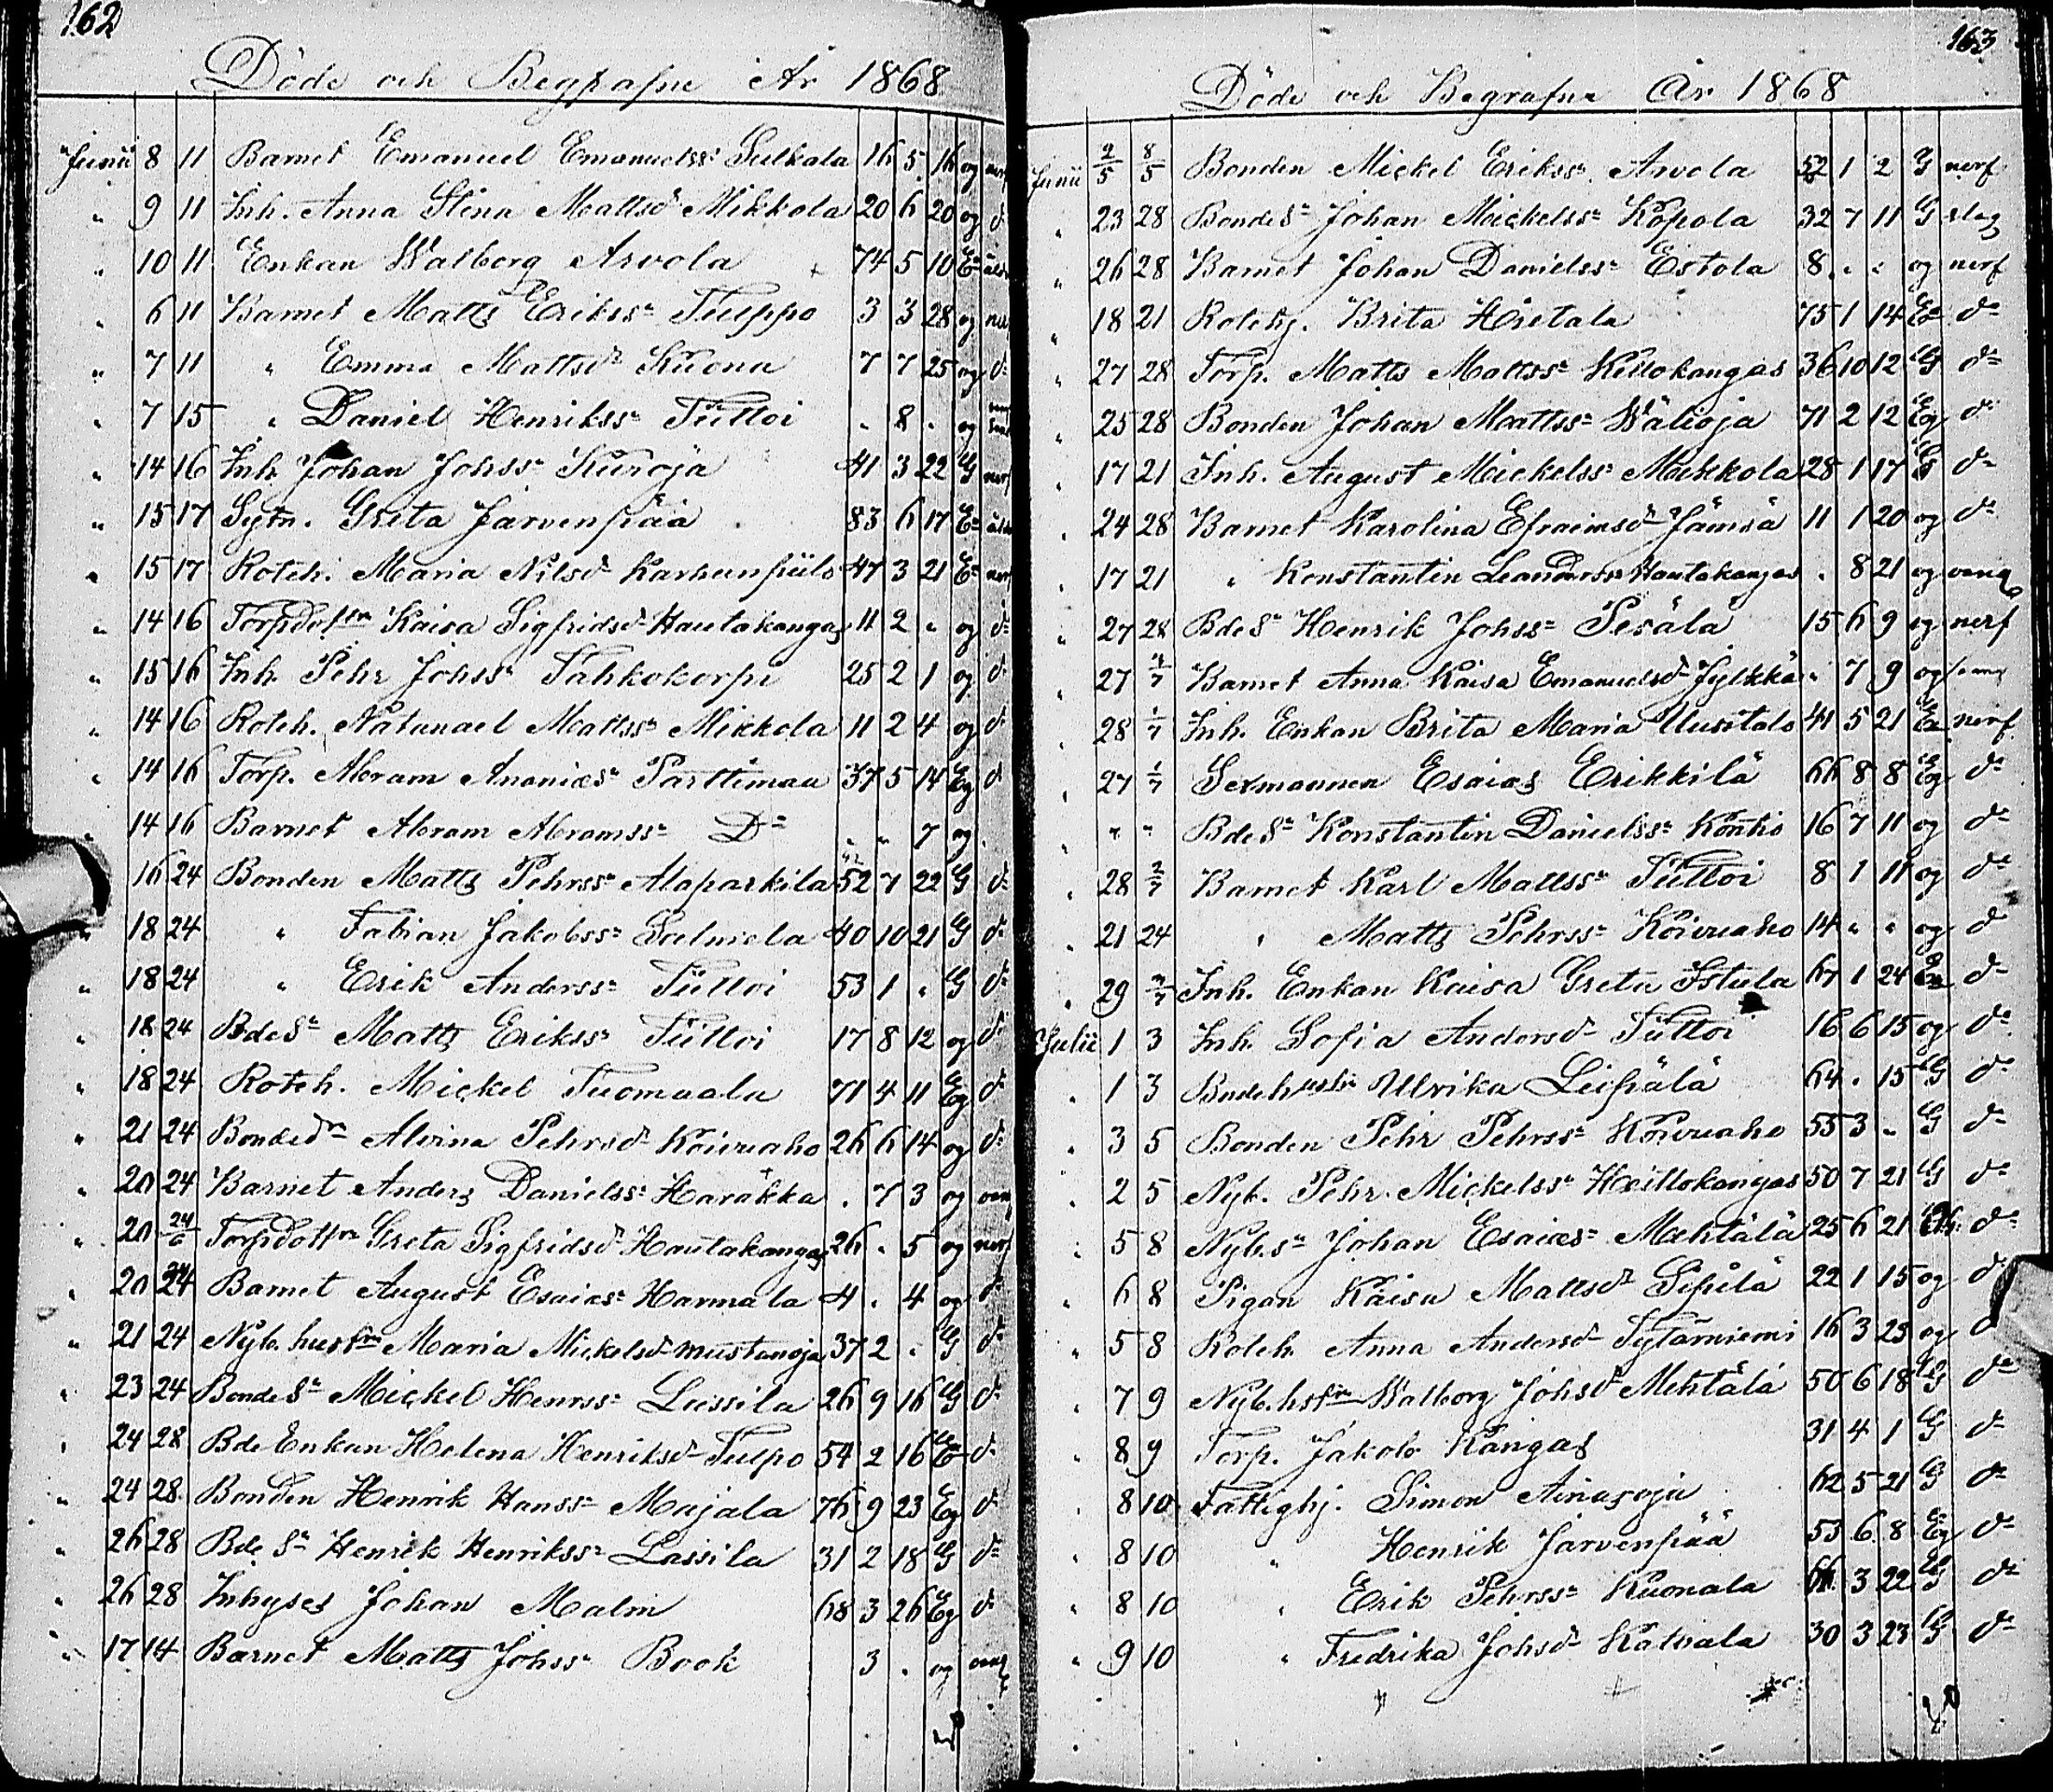 162
Döde och Begrafne År 1868
Junii 8 11 Barnet Emanuel Emanuelss. Sulkala 16 5 16 og nerf
" 9 11 Inh. Anna Stina Mattsd. Mikkola 20 6 20 og d:
" 10 11 Enkan Walborg Arvola 74 5 10 E=
" 6 11 Barnet Matts Erikss= Tulppo 3 3 28 og
" 7 11 " Emma Mattsd= Kuona 7 7 25 og d=
" 7 15 " Daniel Henrikss= Tuttoi " 8 " og
" 14 16 Inh. Johan Johss= Kuroja 41 3 22 G nerf
" 15 17 Sytn. Greta Järvenpää 83 6 17 E=
" 15 17 Roteh. Maria Nilsd= Karhunpiilo 47 3 21 E= nerf
" 14 16 Torpdottrn Kaisa Sigfridsd= Hautakangas 11 2 " og d=
" 15 16 Inh. Pehr Johss= Tahkokorpi 25 2 1 og d=
" 14 16 Roteh. Natanael Mattss= Mikkola 11 2 4 og d
" 14 16 Torp. Abram Ananiæs= Parttimaa 37 5 14 Eg d
" 14 16 Barnet Abram Abramss= D= " " 7 og
16 24 Bonden Matts Pehrss= Alaparkila 52 7 22 G d=
" 18 24 " Fabian Jakobss= Salmela 40 10 21 G d=
" 18 24 " Erik Anderss= Tuttoi 53 1 " G d=
" 18 24 Bde S= Matts Erikss= Tuttoi 17 8 12 og d=
" 18 24 Roteh. Mickel Tuomaala 71 4 11 Eg d
" 21 24 Bonded= Alvina Pehrsd= Koivuaho 26 6 14 og d=
" 20 24 Barnet Anders Danielss= Harakka " 7 3 og
" 20 24/6 Torpdottrn Greta Sigfridsd= Hautakangas 26 " 5 og nerf
" 20 24 Barnet August Esaiæs= Harmala 4 " 4 og d=
" 21 24 Nyb. hustrn Maria Mickelsd= Mustanoja 37 2 " G d=
" 23 24 Bonde S= Mickel Henrss= Lassila 26 9 16 G d=
" 24 28 Bde Enkan Helena Henriksd= Tulpo 54 2 16 E= d=
" 24 28 Bonden Henrik Hanss= Majala 76 9 23 Eg d=
" 26 28 Bde S= Henrik Henrikss= Lassila 31 2 18 G d=
" 26 28 Inhyses Johan Malm 68 3 26 Eg d=
" 17 14 Barnet Matts Johss= Book 3 " og
163
Döde och Begrafne År 1868
Junii 2/5 8/5 Bonden Mickel Erikss. Arvola 52 1 2 G nerf
" 23 28 Bonde S= Johan Mickelss= Kopola 32 7 11 G slag
" 26 28 Barnet Johan Danielss= Estola 8 " " og nerf
" 18 21 Rotehj. Brita Hietala 75 1 14 E= d=
" 27 28 Torp. Matts Mattss= Kellokangas 36 10 12 G d=
" 25 28 Bonden Johan Mattss= Wälioja 71 2 12 Eg d=
" 17 21 Inh. August Mickelss= Mikkola 28 1 17 G d=
" 24 28 Barnet Karolina Efraimsd= Jämsä 11 1 20 og d=
" 17 21 " Konstantin Leanderss= Hautakangas " 8 21 og
" 27 28 Bde S= Henrik Johss= Pesälä 15 6 9 og nerf
" 27 Barnet Anna Kaisa Emanuelsd= Jylkkä " 7 9 og
" 28 1/7 Inh. Enkan Brita Maria Uusitalo 41 5 21 E= nerf
" 27 1/7 Sexmannen Esaias Erikkilä 66 8 8 Eg d=
" " " Bde S= Konstantin Danielss= Kontio 16 7 11 og d=
" 28 2/7 Barnet Karl Mattss= Tuttoi 8 1 11 og d=
" 21 24 " Matts Pehrss= Koivuaho 14 " " og d
" 29 Inh. Enkan Kaisa Greta Istula 67 1 24 E= d=
Julii 1 3 Inh. Sofia Andersd= Tuttoi 16 6 15 og d=
" 1 3 Bndehustrn Ulrika Leipälä 64 " 15 G d=
" 3 5 Bonden Pehr Pehrss= Koivuaho 55 3 " G d=
" 2 5 Nyb. Pehr Mickelss= Heillokangas 50 7 21 G d=
" 5 8 Nyb. s= Johan Esaiæs= Mehtälä 25 6 21 d=
" 6 8 Pigan Kaisa Mattsd= Sipilä 22 1 15 og d
" 5 8 Roteh. Anna Andersd= Sytärniemi 16 3 23 og d
" 7 9 Nyb. hstrn Walborg Johsd= Mehtälä 50 6 18 G d=
" 8 9 Torp. Jakob Kangas 31 4 1 G d=
" 8 10 Fattighj. Simon Ainasoja 62 5 21 G d=
" 8 10 " Henrik Järvenpää 53 6 8 Eg d=
" 8 10 " Erik Pehrss= Kuonala 66 3 22 G d=
" 9 10 " Fredrika Johsd= Katiala 30 3 23 G d=